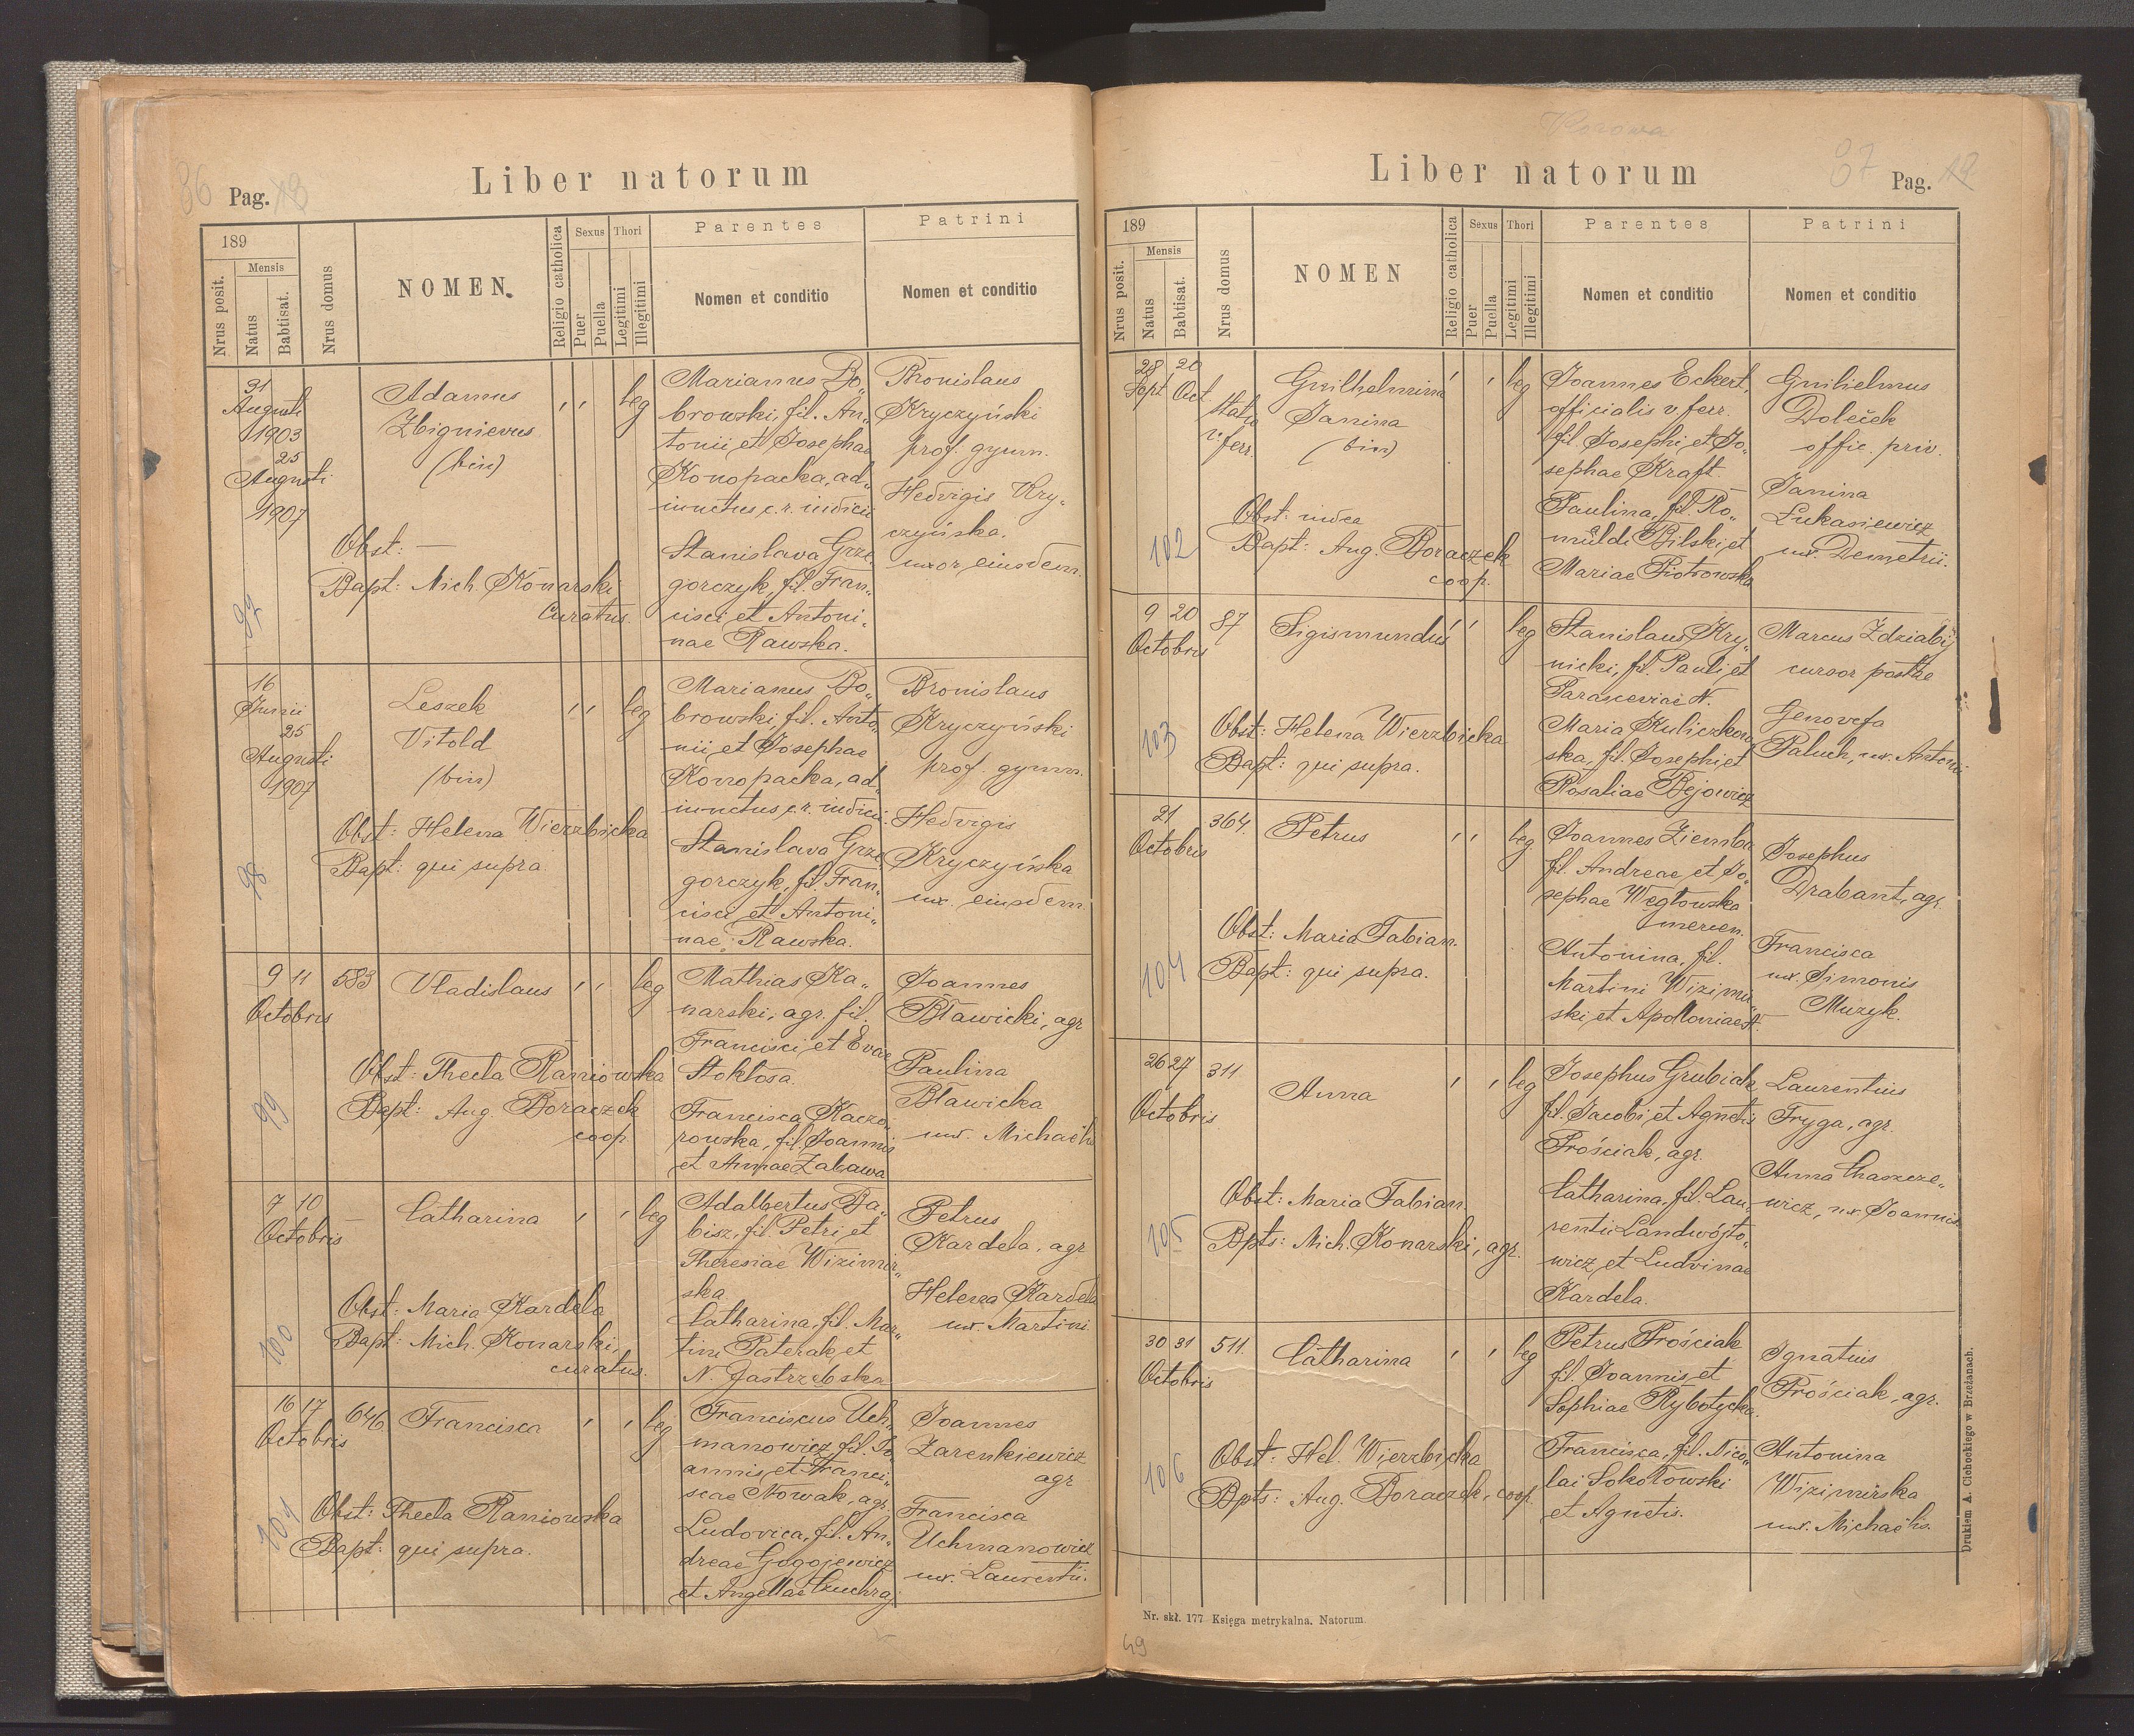 86 Pag. 18
Liber natorum
189
Nrus posit.
Mensis
Natus
Babtisat.
Nrus domus
NOMEN.
Religio catholica
Sexus
Puer
Puella
Thori
Legitimi
Illegitimi
Parentes
Nomen et conditio
Patrini
Nomen et conditio
31
Augusti
1903
25
Augusti
1907
97
Adamus
Zbignievus
(bin)
leg
Obst: —
Bapt: Mich. Konarski
curatus.
Marianus Bo„
browski, fil. An„
tonii et Josephae
Konopacka, ad„
iunctus c. r. iudicii
Stanislava Grze„
gorczyk, fil. Fran„
cisci et Antoni„
nae Rawska.
Bronislaus
Kryczyński
prof. gymn.
Hedvigis Kry„
czyńska.
uxor eiusdem.
16
Junii
25
Augusti
1907
98
Leszek
Vitold
(bin)
leg
Obst: Helena Wierzbicka
Bapt: qui supra
Marianus Bo„
browski, fil. Anto„
nii et Josephae
Konopacka, ad„
iunctus c. r. iudicii.
Stanislava Grze„
gorczyk, fil. Fran„
cisci et Antoni„
nae Rawska.
Bronislaus
Kryczyński
prof. gymn.
Hedvigis
Kryczyńska
ux. eiusdem.
9 11
Octobris
99
583
Vladislaus
leg
Obst: Thecla Raniowska
Bapt: Aug. Boraczek
coop.
Mathias Ka„
narski, agr. fil.
Francisci et Evae
Stokłosa.
Francisca Kaczo„
rowska, fil. Joannis
et Annae Zabawa
Joannes
Bławicki, agr
Paulina
Bławicka
ux. Michaëlis
7 10
Octobris
100
—
Catharina
leg
Obst: Maria Kardela
Bapt: Mich. Konarski,
curatus.
Adalbertus Ba„
bisz, fil. Petri et
Theresiae Wizimir„
ska
Catharina, fil. Mar„
tini Paterak et
N. Jastrzębska
Petrus
Kardela, agr
Helena Kardela
ux. Martini
16 17
Octobris
101
646
Francisca
leg
Obst: Thecla Raniowska
Bapt: qui supra.
Franciscus Uch„
manowicz, fil. Jo„
annis et Franci„
scae Nowak, agr.
Ludovica, fil. An„
dreae Gogojewicz
et Angellae Cuchraj
Joannes
Zarenkiewicz
agr
Francisca
Uchmanowicz
ux. Laurentii.
Liber natorum
87 Pag. 19
189
Nrus posit.
Mensis
Natus
Babtisat.
Nrus domus
NOMEN
Religio catholica
Sexus
Puer
Puella
Thori
Legitimi
Illegitimi
Parentes
Nomen et conditio
Patrini
Nomen et conditio
28 20
Sept Oct
102
Statio
v. ferr.
Guilhelmina
Janina
(bin)
leg
Obst:
Bapt: Aug. Boraczek
coop.
Joannes Eckert,
officialis v. ferr.
fil. Josephi et Jo„
sephae Kraft
Paulina, fil. Ro„
muldi Bilski et
Mariae Piotrowska
Guilielmus
Doleček
offic. priv.
Janina
Łukasiewicz
ux. Demetrii.
9 20
Octobris
103
87
Sigismundus
leg
Obst: Helena Wierzbicka
Bapt: qui supra.
Stanislaus Kry„
nicki, fil. Pauli et
Parasceviae N.
Maria Kuliczkow
ska, fil. Josephi et
Rosaliae Bejowicz
Marcus Zdziabij
cursor postae
Genovefa
Paluch, ux. Antonii
21
Octobris
104
364.
Petrus
leg
Obst: Maria Fabian.
Bapt: qui supra.
Joannes Ziemba
fil. Andreae et Jo„
sephae Węgłowska
mercen.
Antonina, fil.
Martini Wizimir„
ski et Apolloniae N
Josephus
Drabant, agr.
Francisca
ux. Simonis
Muzyk.
26 27
Octobris
105
311
Anna
leg
Obst: Maria Fabian.
Bpts: Mich. Konarski, agr.
Josephus Grubiak
fil. Jacobi et Agnetis
Prościak, agr.
Catharina, fil. Lau„
rentii Landwójto„
wicz et Ludvinae
Kardela.
Laurentius
Fryga, agr.
Anna Chaszcze„
wicz, ux. Joannis
30 31
Octobris
106
511.
Catharina
leg
Obst: Hel. Wierzbicka
Bpts: Aug. Boraczek, coop.
Petrus Prościak
fil. Joannis et
Sophiae Rybotycka.
Francisca, fil. Nico„
lai Sokołowski
et Agnetis.
Ignatius
Prościak, agr.
Antonina
Wizimirska
ux. Michaëlis.
Nr. skł. 177 Księga metrykalna. Natorum
49
Drukiem A. Cichockiego w Brzeżanach.